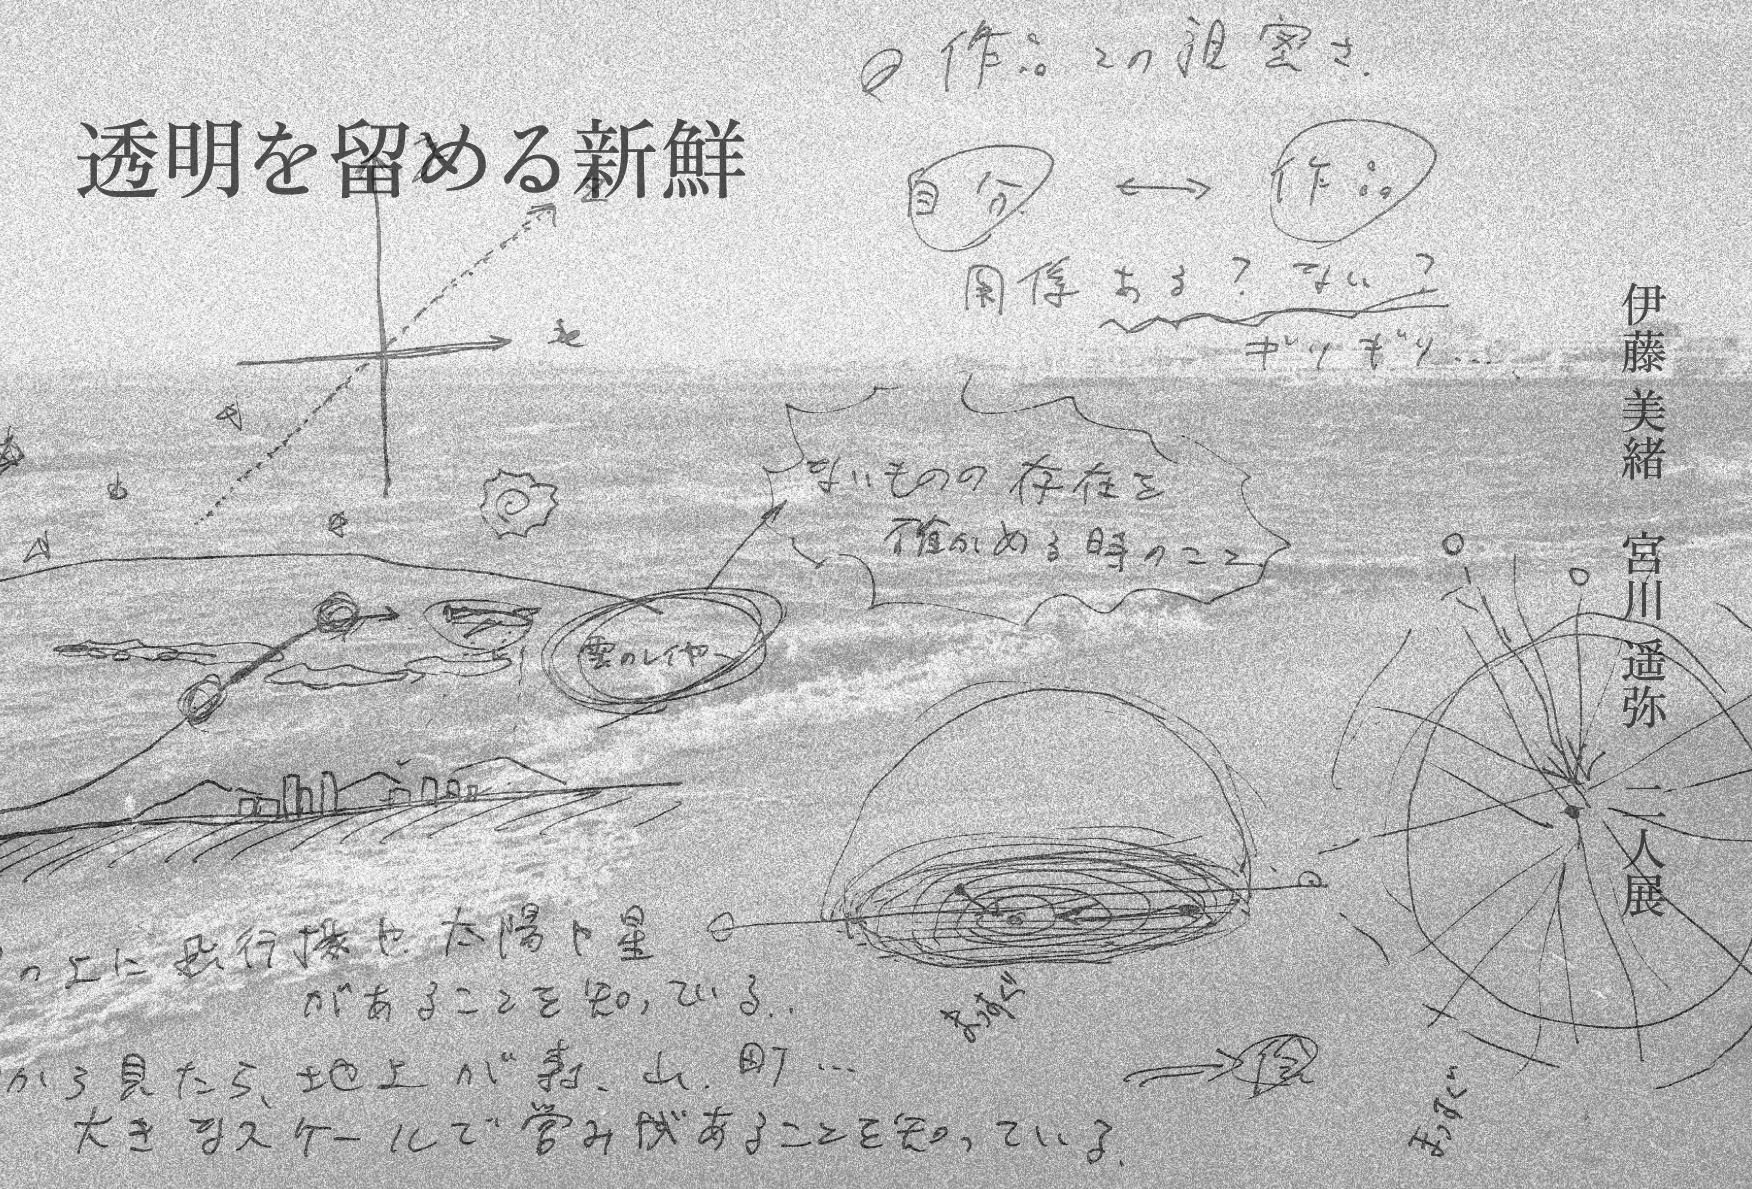 透明を留める新鮮
伊藤美緒 宮川遥弥 二人展
作品との親密さ.
自分 ↔ 作品
関係ある？ない？
ギリギリ…
ないものの存在を
確かめる時のこと
雲のレイヤー
の上に飛行機や太陽や星
があることを知っている..
から見たら、地上が森、山、町…
大きなスケールで営みがあることを知っている.
まっすぐ
まっすぐ